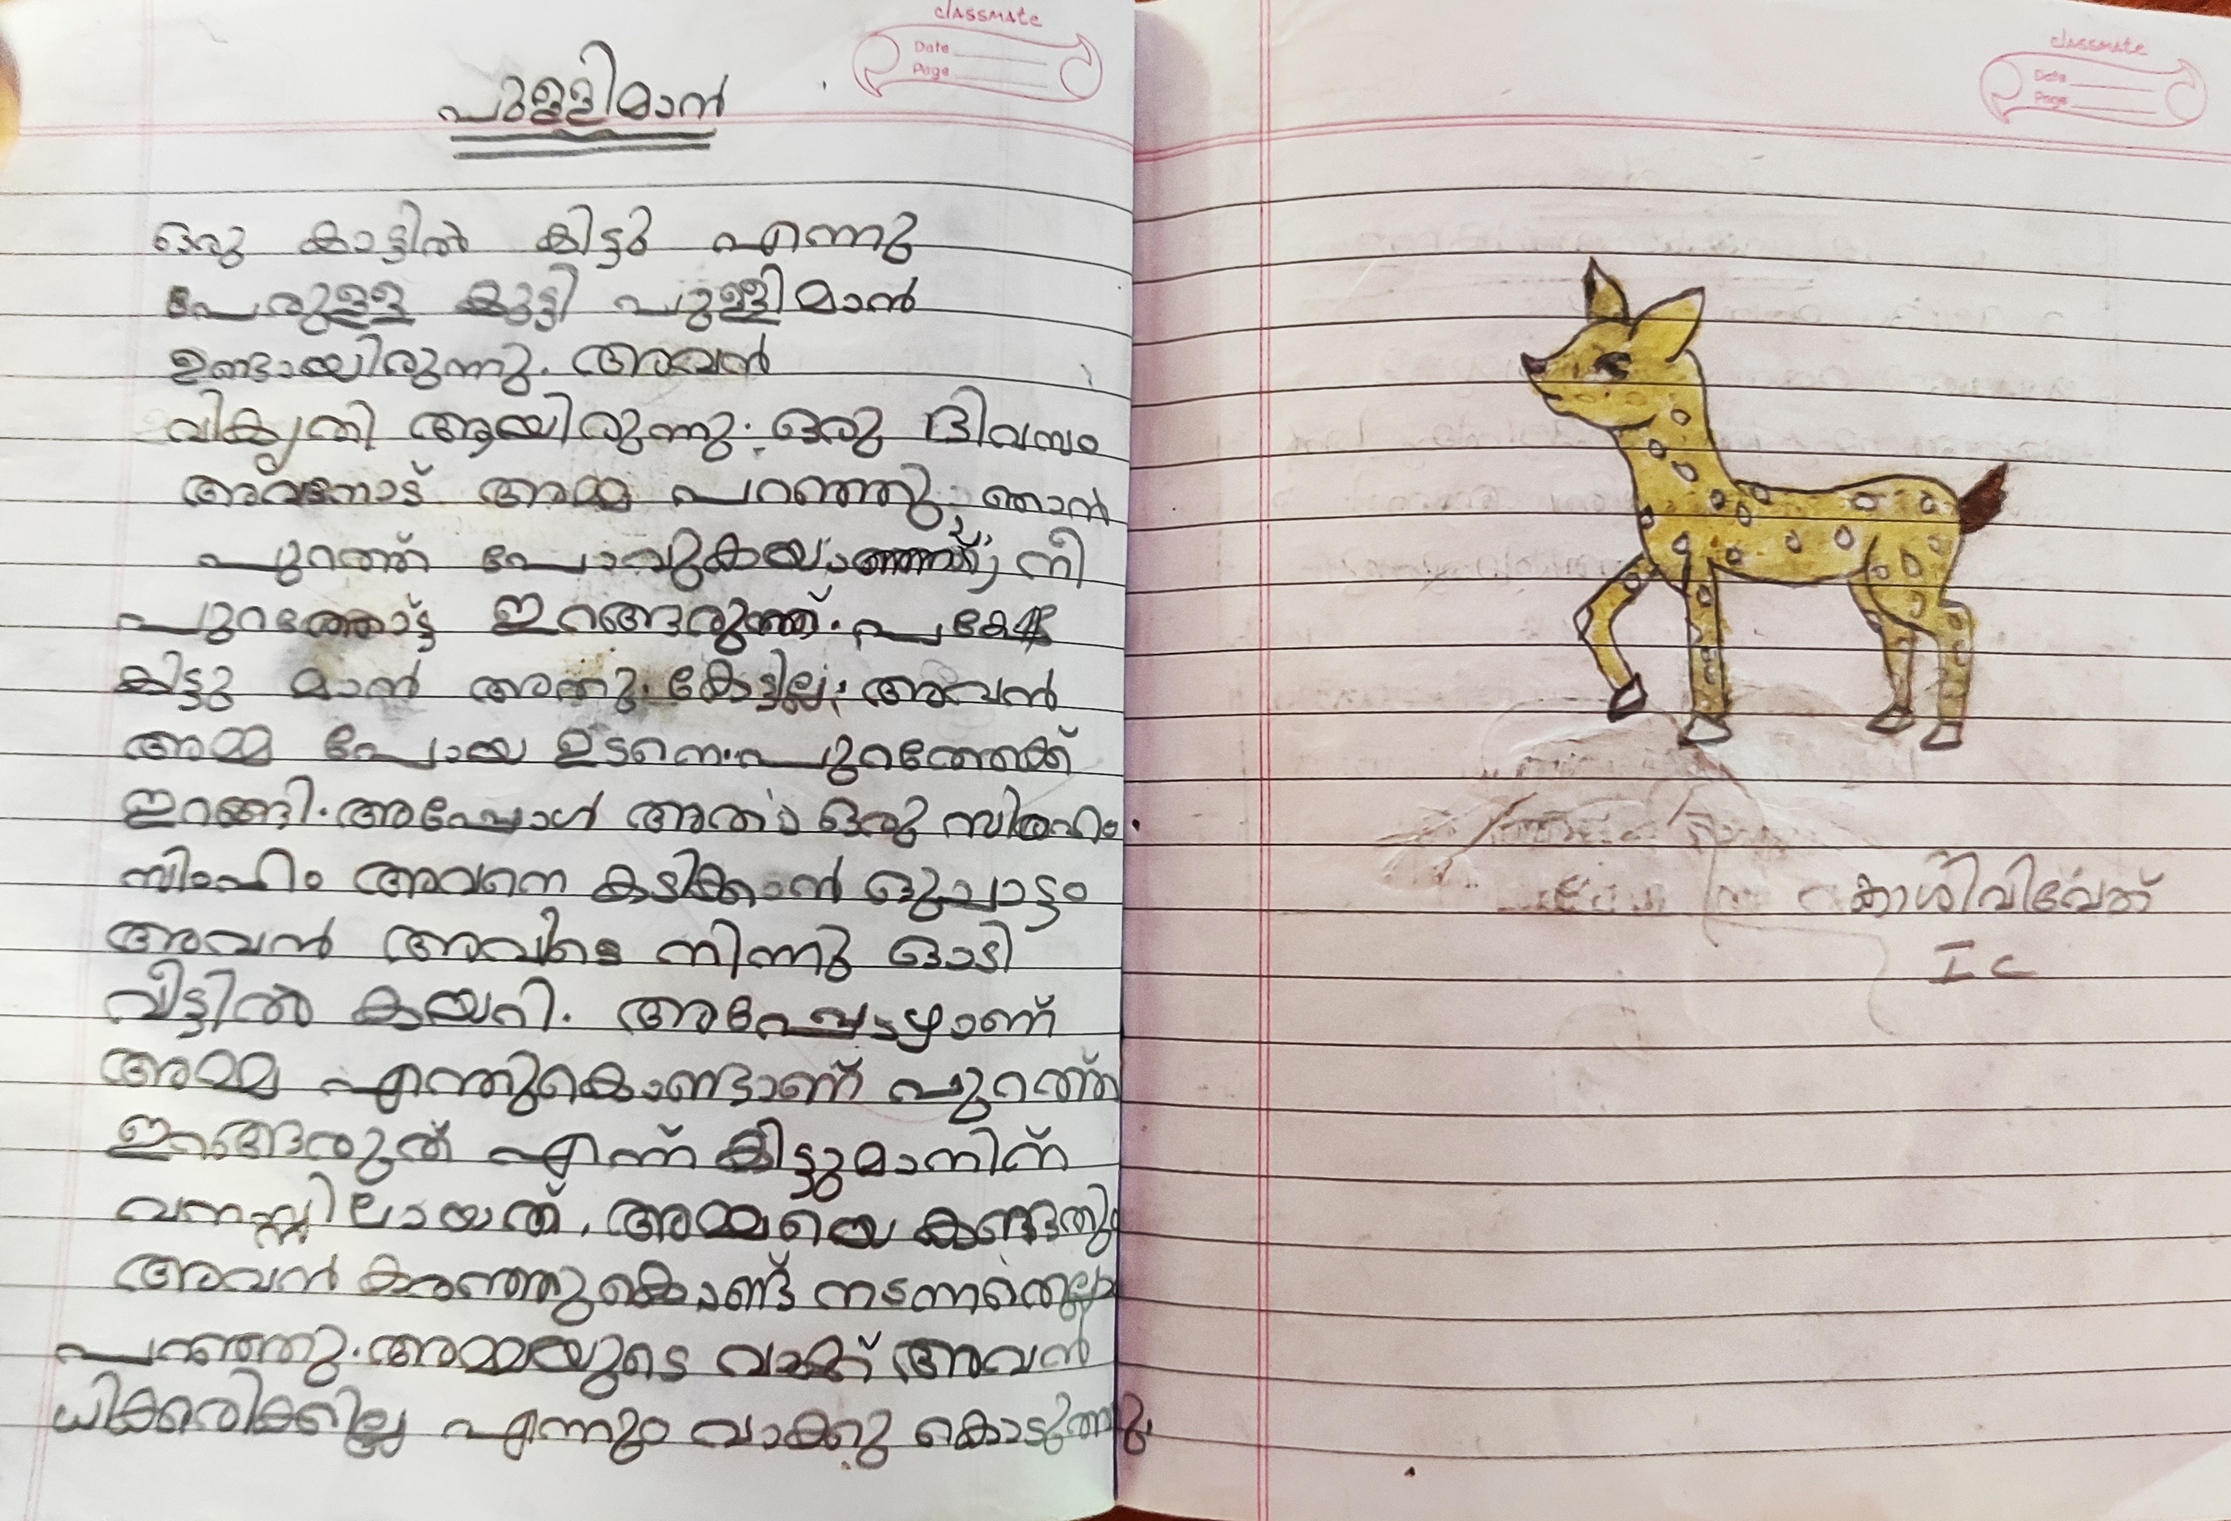 classmate
Date
Page
പുള്ളിമാൻ
ഒരു കാട്ടിൽ കിട്ടു എന്നു
പേരുള്ള കുട്ടി പുള്ളിമാൻ
ഉണ്ടായിരുന്നു. അവൻ
വികൃതി ആയിരുന്നു. ഒരു ദിവസം
അവനോട് അമ്മ പറഞ്ഞു. ഞാൻ
പുറത്ത് നീ
പുറത്തോട്ട് ഇറങ്ങരുത്ത്.
കിട്ടു മാൻ അതു കേട്ടില്ല. അവൻ
അമ്മ പോയ ഉടനെ പുറത്തേക്ക്
ഇറങ്ങി. അപ്പോൾ അതാ ഒരു സിംഹം.
സിംഹം അവനെ കടിക്കാൻ ഒരുചാട്ടം
അവൻ അവിടെ നിന്നു ഓടി
വീട്ടിൽ കയറി. അപ്പോഴാണ്
അമ്മ എന്തുകൊണ്ടാണ് പുറത്ത്
ഇറങ്ങരുത് എന്ന് കിട്ടുമാനിന്
മനസ്സിലായത്. അമ്മയെ കണ്ടതും
അവൻ കരഞ്ഞുകൊണ്ട് നടന്നതെല്ലാ
പറഞ്ഞു. അമ്മയുടെ വാക്ക് അവൻ
ധിക്കരിക്കില്ല എന്നും വാക്കു കൊടുത്തു.
classmate
Date
Page
കാശിവിവേത്
I C